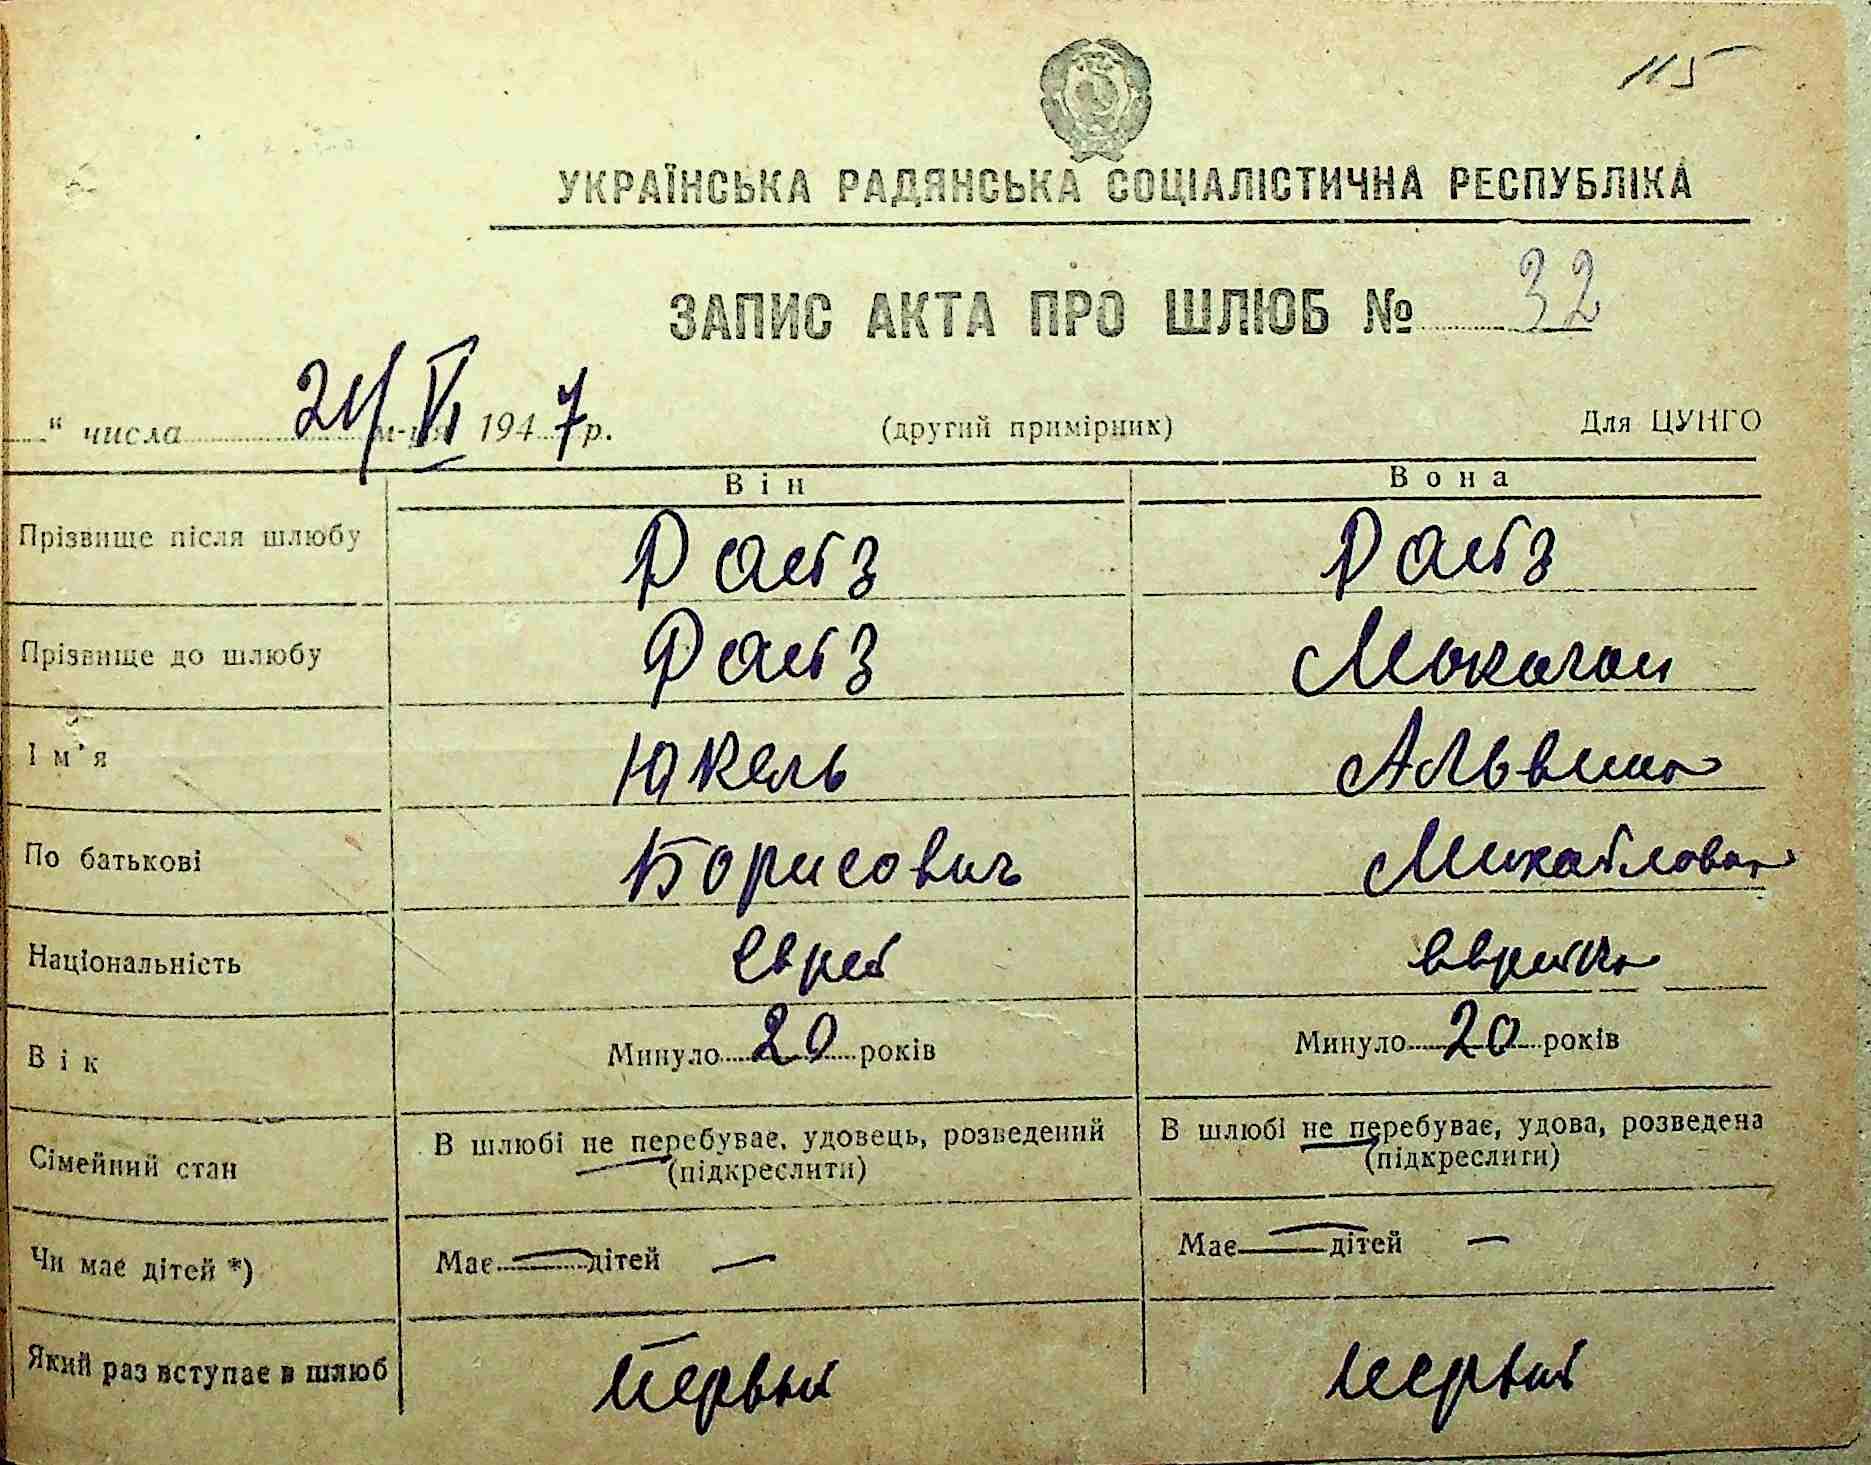 115
УКРАЇНСЬКА РАДЯНСЬКА СОЦІАЛІСТИЧНА РЕСПУБЛІКА
ЗАПИС АКТА ПРО ШЛЮБ № 32
" числа 21/VI м-ця 1947 р. (другий примірник) Для ЦУНГО
Він Вона
Прізвище після шлюбу
Прізвище до шлюбу
Ім'я Юкель Альвина
По батькові Борисович Михайловна
Національність еврей еврейка
Вік Минуло 20 років Минуло 20 років
Сімейний стан В шлюбі не перебуває, удовець, розведений (підкреслити) В шлюбі не перебуває, удова, розведена (підкреслити)
Чи має дітей *) Має — дітей — Має — дітей —
Який раз вступає в шлюб первый первый